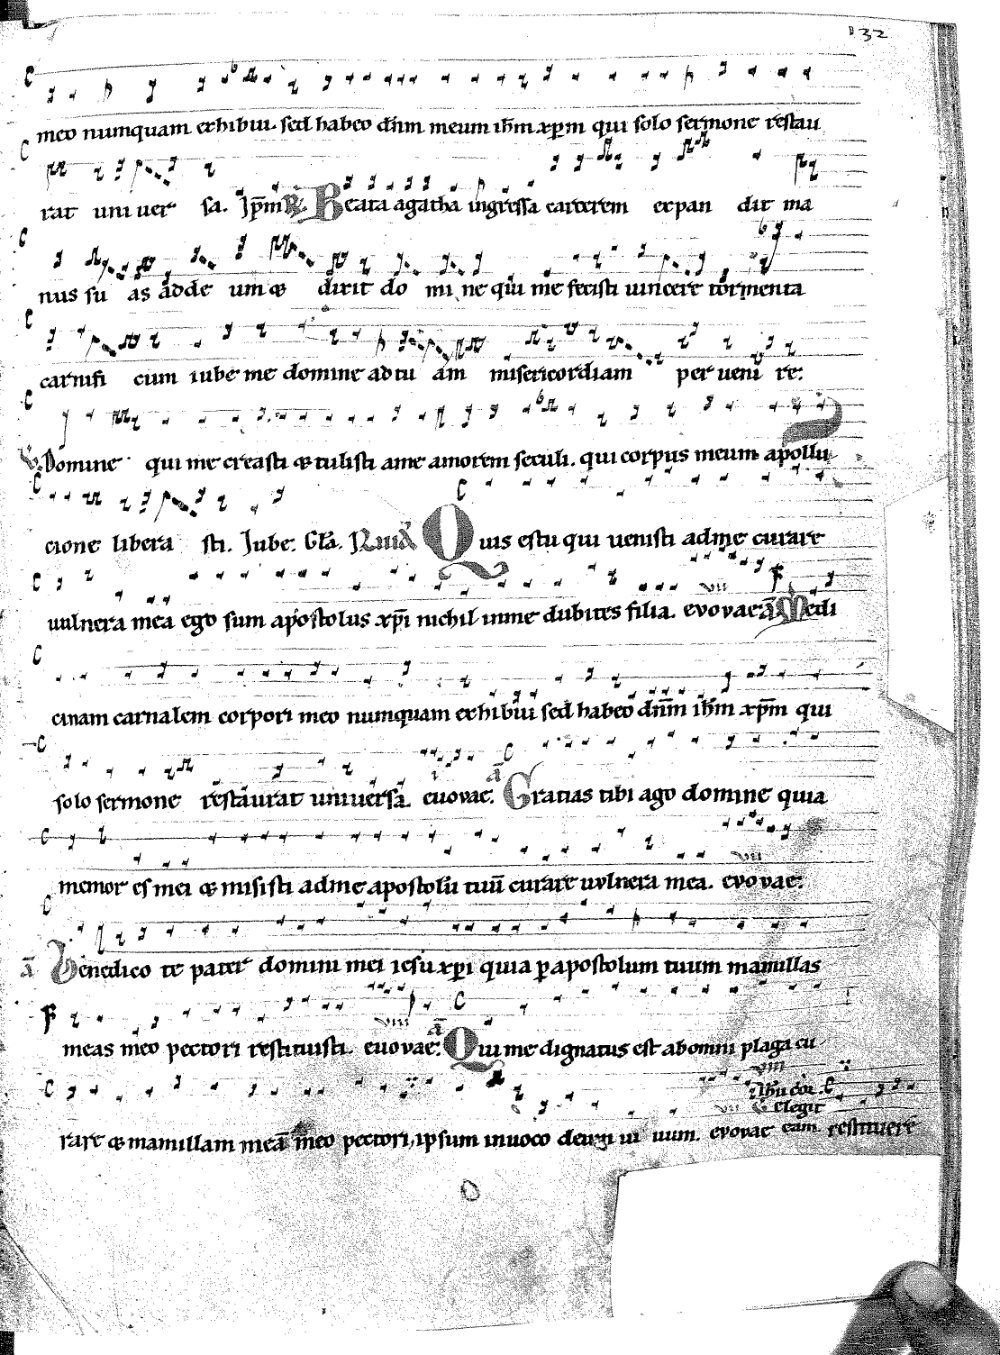 132
meo numquam exhibui. sed habeo dn̄m meum ih̄m xp̄m qui solo sermone restau
rat uni uer sa. Ip̄m R. Beata agatha ingressa carcerem expan dit ma
nus su as ad de um & dixit do mi ne qui me fecisti uincere tormenta
carnifi cum iube me domine ad tu am misericordiam per ueni re.
V. Domine qui me creasti & tulisti a me amorem seculi. qui corpus meum a pollu
cione libera sti. Iube. Gl̄a. Quis es tu qui uenisti ad me curare
uulnera mea ego sum apostolus xp̄i nichil in me dubites filia. evovae. ā Medi
cinam carnalem corpori meo numquam exhibui sed habeo dn̄m ih̄m xp̄m qui
solo sermone restaurat uniuersa. euovae. ā Gratias tibi ago domine quia
memor es mei & misisti ad me apostolū tuū curare uulnera mea. evovae.
ā Benedico te pater domini mei iesu xp̄i quia p apostolum tuum mamillas
meas meo pectori restituisti. euovae. ā Qui me dignatus est ab omni plaga cu
rare & mamillam meā meo pectori, ipsum inuoco deum ui uum. evovae eam. restituere